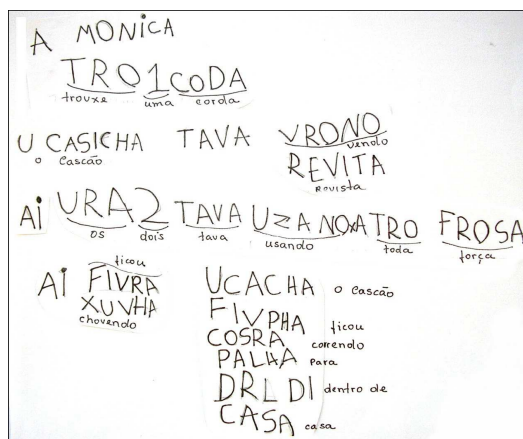 A MONICA
TRO 1 CODA
trouxe uma corda
U CASICHA TAVA VRONO
o Cascão vendo
REVITA
Revista
Ai URA 2 TAVA UZANOXA TRO FROSA
os dois tava usando toda força
ficou
Ai FIVRA
XUVHA
chovendo
UCACHA o cascão
FIVPHA ficou
COSRA correndo
PALHA para
DRLDI dentro de
CASA casa